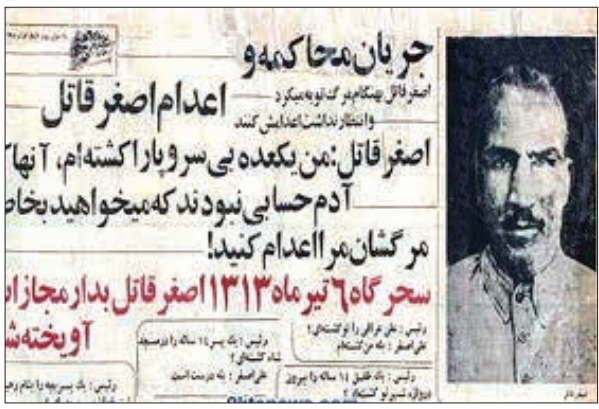 جریان محاکمه و
اصغر قاتل بهنگام مرگ توبه میکرد
اعدام اصغر قاتل
و انتظار نداشت اعدامش کنند
اصغر قاتل: من یکعده بی سر و پا را کشته ام، آنها
آدم حسابی نبودند که میخواهید بخا
مرگشان مرا اعدام کنید!
سحرگاه ٦ تیر ماه ۱۳۱۳ اصغر قاتل بدار مجازا
آویخته ش
رئیس: علی عراقی را تو کشته ای؟
علی اصغر: بله من کشته ام
رئیس: یک پسر ۱٤ ساله را در مسجد
شاه کشته ای؟
علی اصغر: بله درست است
رئیس: یک طفل ۱٤ ساله را بیرون
دروازه شمیران کشته ای؟
رئیس: یک پسر بچه را بنام